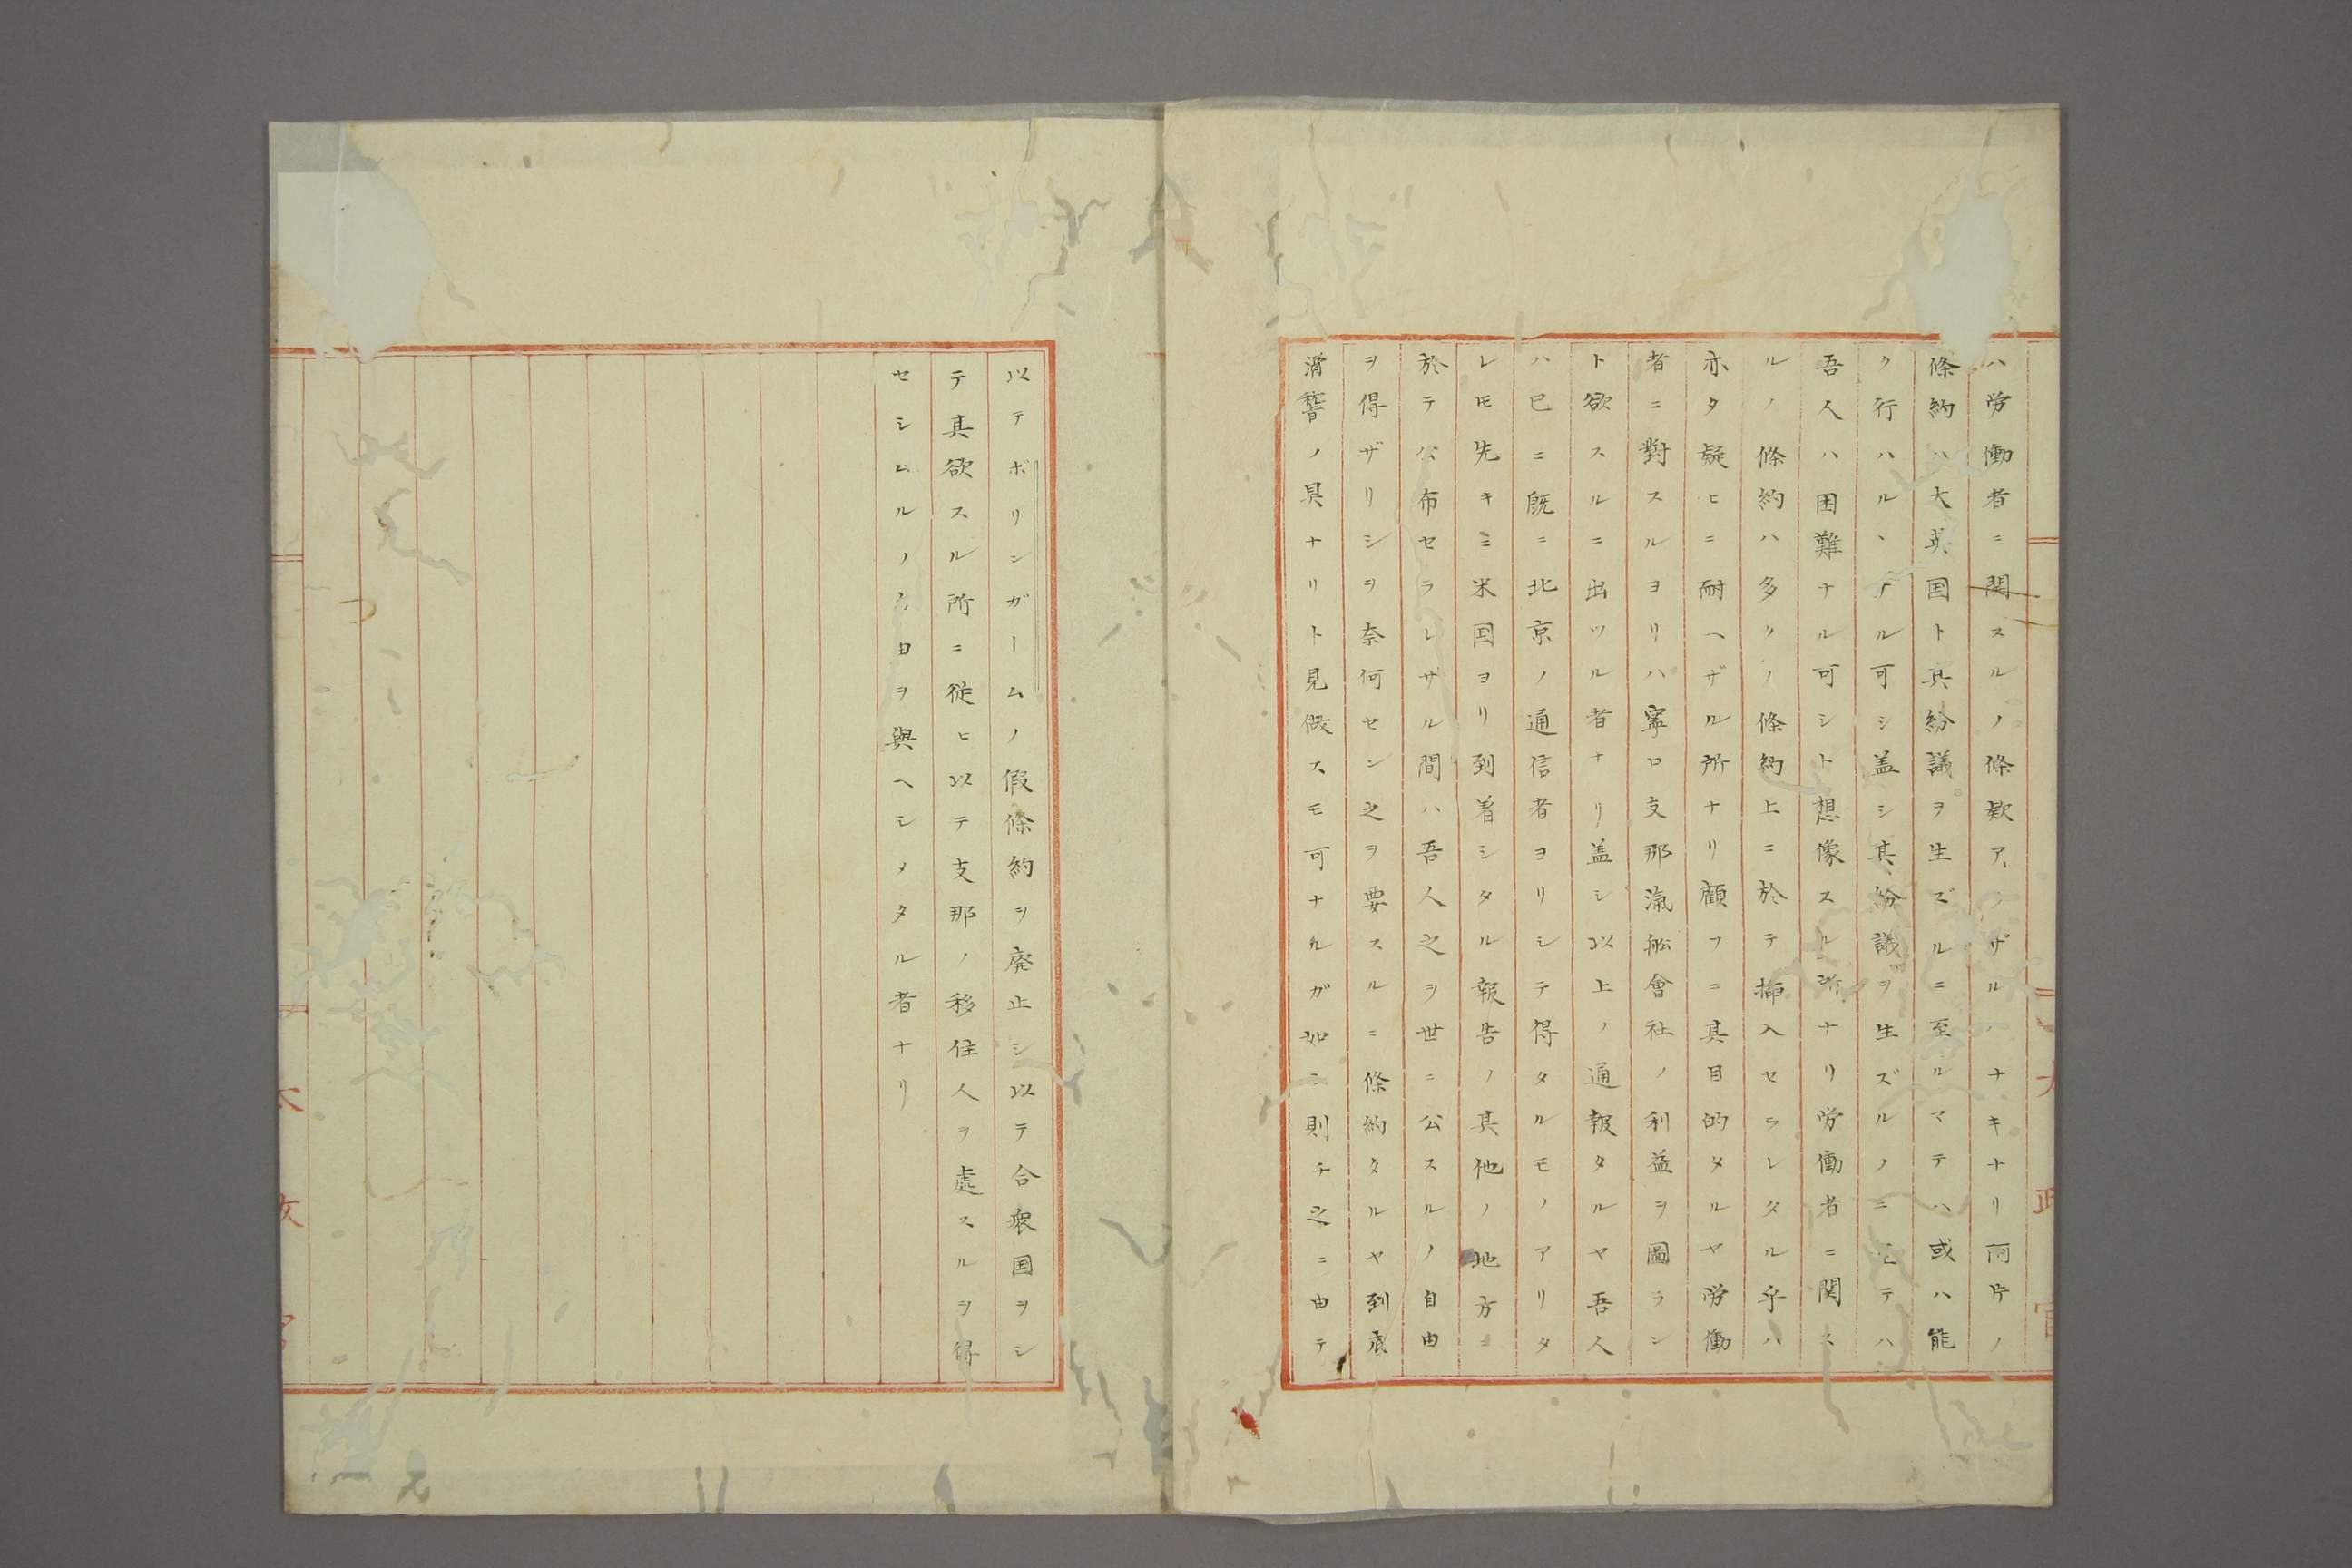 ハ労働者ニ関スルノ條欵アラザルノナキナリ阿片ノ
條約ハ大英国ト其紛議ヲ生ズルニ至ルマテハ或ハ能
ク行ハルヽナル可シ盖シ其紛議ヲ生ズルノニ テハ
吾人ハ困難ナル可シト想像スル所ナリ労働者ニ関ス
ルノ條約ハ多クノ條約上ニ於テ挿入セラレタル乎ハ
亦タ疑ヒニ耐ヘザル所ナリ顧フニ其目的タルヤ労働
者ニ對スルヨリハ寧ロ支那滊舩會社ノ利益ヲ圖ラン
ト欲スルニ出ツル者ナリ盖シ以上ノ通報タルヤ吾人
ハ已ニ既ニ北京ノ通信者ヨリシテ得タルモノアリタ
レ㠪先キニ米国ヨリ到着シタル報告ノ其他ノ地方ニ
於テ公布セラレザル間ハ吾人之ヲ世ニ公スルノ自由
ヲ得ザリシヲ奈何セン之ヲ要スルニ條約タルヤ到底
滑稽ノ具ナリト見做スモ可ナルガ如ニ則チ之ニ由テ
以テボリンガームノ假條約ヲ廃止シ以テ合衆国ヲシ
テ其欲スル所ニ從ヒ以テ支那ノ移住人ヲ處スルヲ得
セシムルノ 由ヲ與ヘシメタル者ナリ
太政官